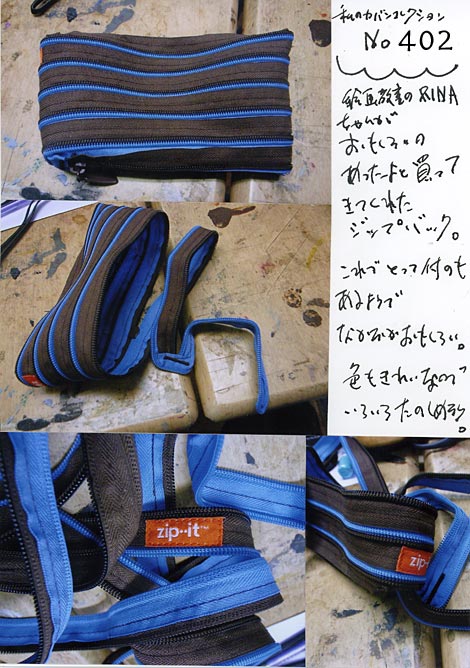 私のカバンコレクション
No 402
絵画教室のRINA
ちゃんが
おもしろいの
あったよと買って
きてくれた
ジップバック。
これでとって付のも
あるようで
なかなかおもしろい。
色もきれいなので
いろいろたのしめそう。
zip··it™
zip·